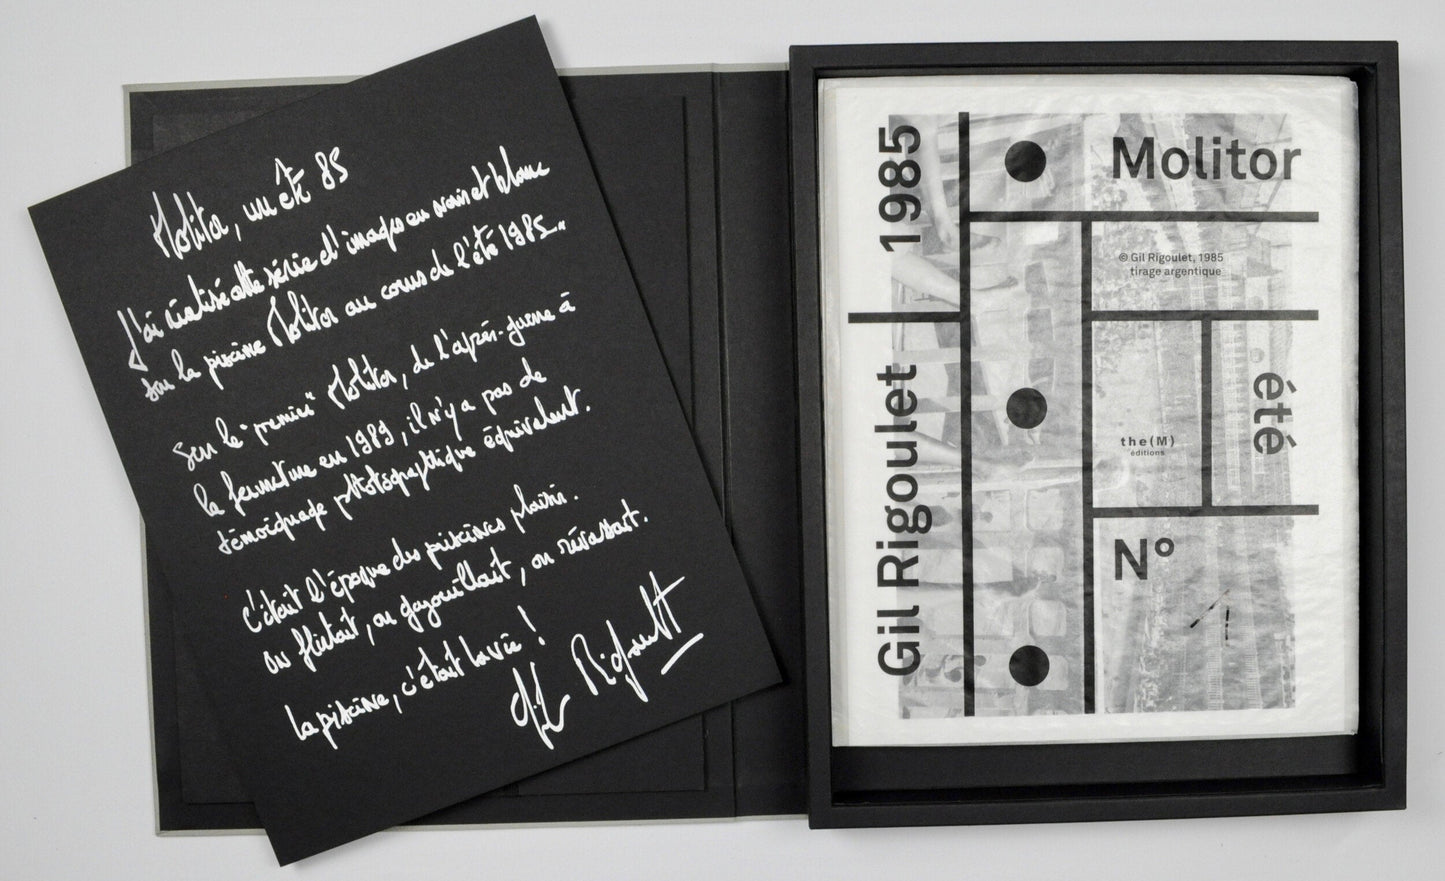 Molitor, un été 85
J'ai réalisé cette série d'images en noir et blanc
sur la piscine Molitor au cours de l'été 1985..
Sur le "premier" Molitor, de l'après-guerre à
la fermeture en 1989, il n'y a pas de
témoignage photographique équivalent.
C'était l'époque des piscines plaisir.
On flirtait, on gazouillait, on rêvassait.
La piscine, c'était la vie !
Gil Rigoulet
Gil Rigoulet 1985
Molitor
© Gil Rigoulet, 1985
tirage argentique
été
the(M)
éditions
N° 1